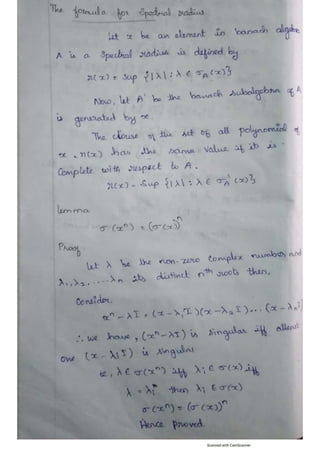 The formula for Spectral radius
Let x be an element in banach algebra
A is a Spectral radius is defined by
r(x) = Sup {|λ| : λ ∈ σA(x)}
Now, let A' be the banach subalgebra of A
is generated by x.
The closure of the set of all polynomial of
x. r(x) has the same value if it is
Complete with respect to A.
r(x) = Sup {|λ| : λ ∈ σA'(x)}
lemma
σ(xⁿ) = (σ(x))ⁿ
Proof
Let λ be the non-zero complex number and
λ₁, λ₂, ..... λn its distinct nth roots then,
Consider.
xⁿ - λI = (x - λ₁I)(x - λ₂I)... (x - λnI)
∴ we have, (xⁿ - λI) is singular iff atleast
one (x - λiI) is singular
ie, λ ∈ σ(xⁿ) iff λi ∈ σ(x) iff
λ = λiⁿ then λi ∈ σ(x)
σ(xⁿ) = (σ(x))ⁿ
Hence proved.
Scanned with CamScanner